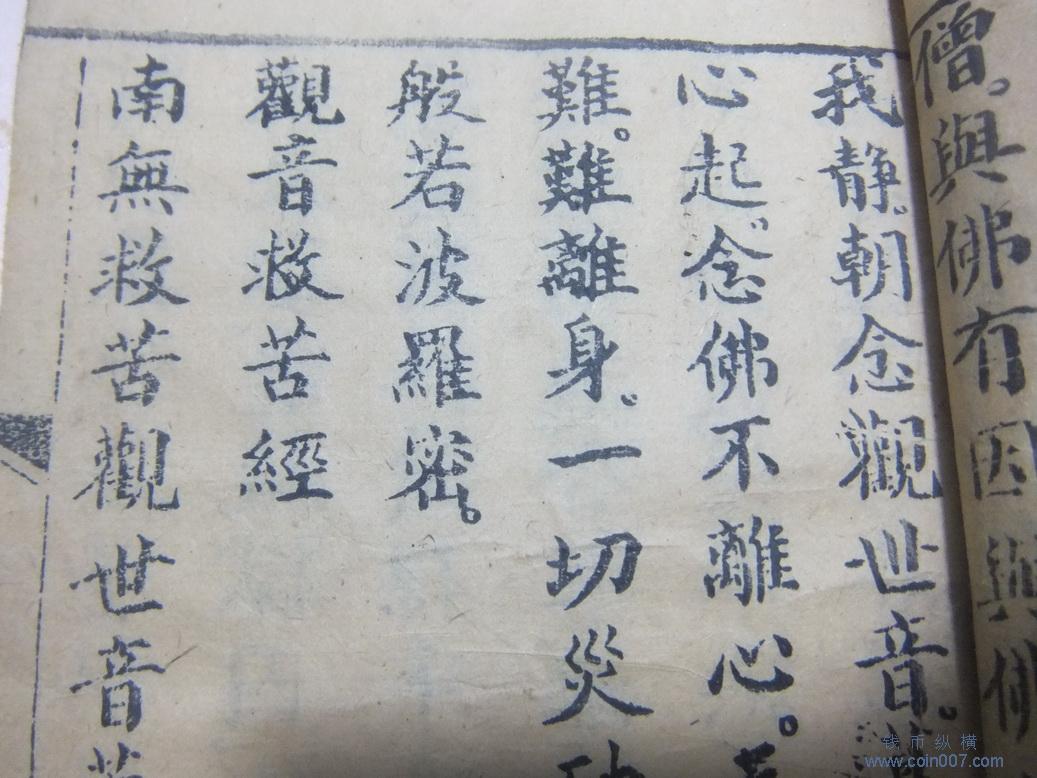 僧。與佛有因與佛
我靜。朝念觀世音。
心起。念佛不離心。
難。難離身。一切災
般若波羅密。
觀音救苦經
南無救苦觀世音
钱币纵横
www.coin007.com